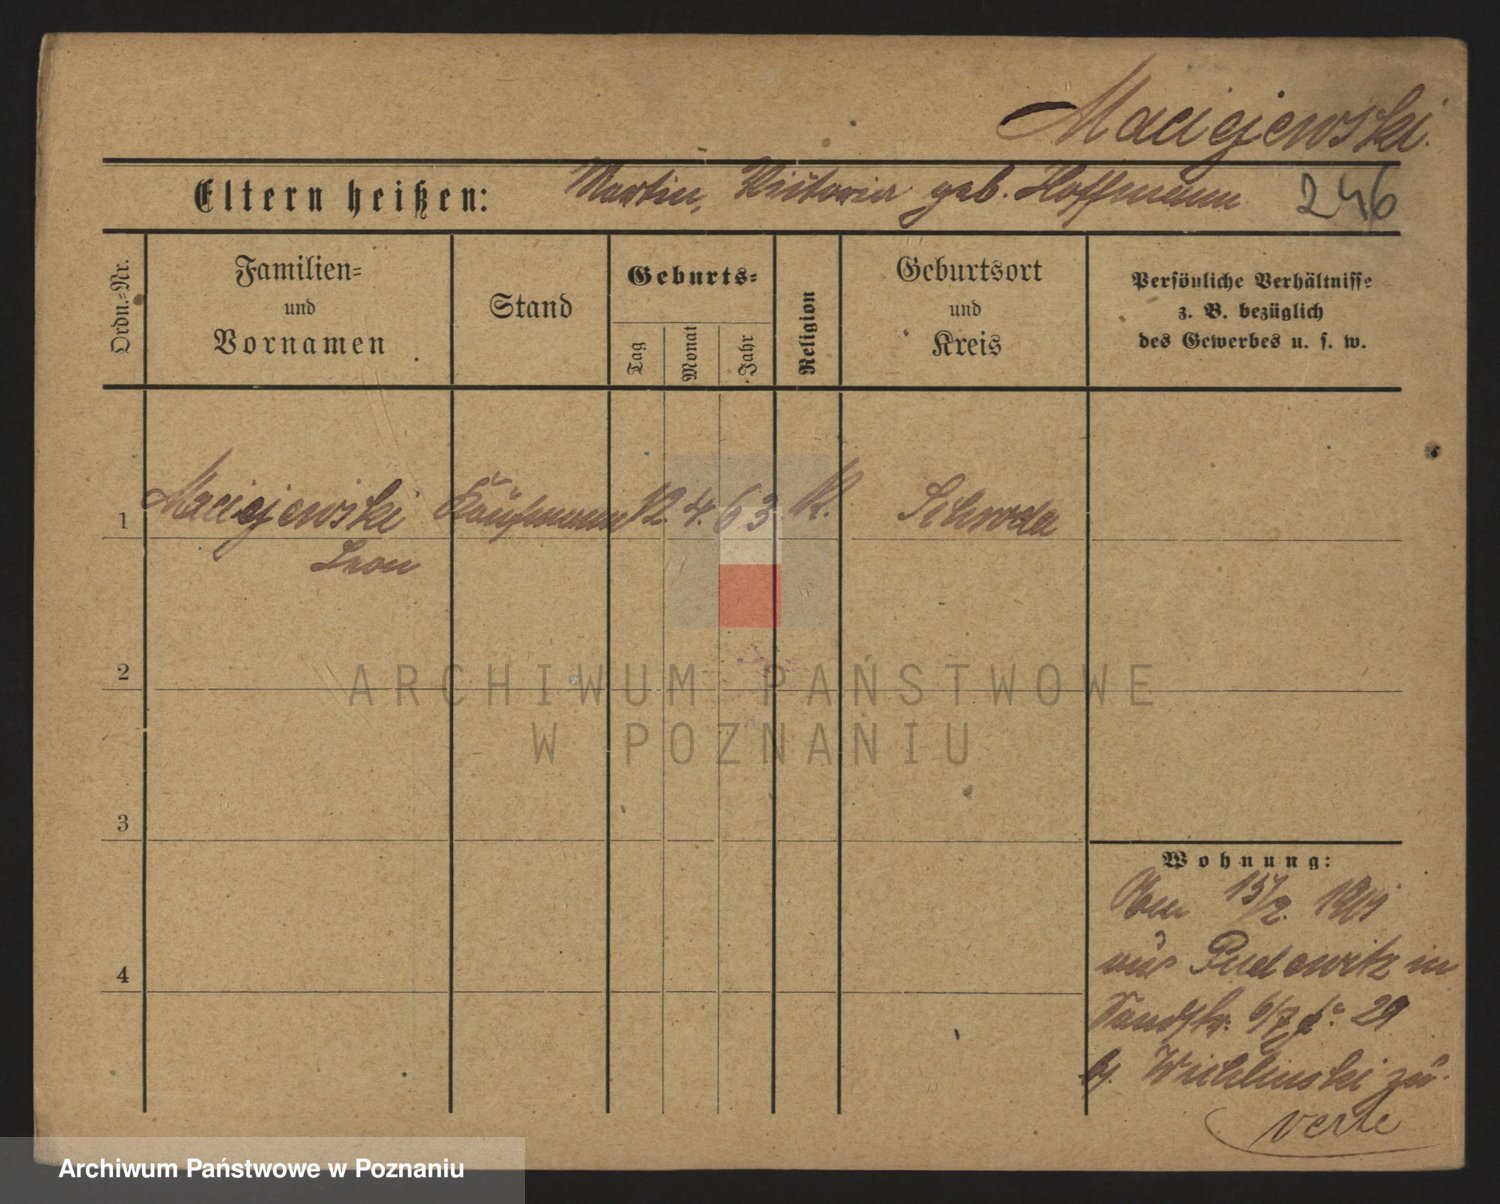 Maciejewski.
Eltern heißen: Martin, Victoria geb. Hoffmann 246
Ordn.-Nr.
Familien=
und
Vornamen
Stand
Geburts=
Tag
Monat
Jahr
Religion
Geburtsort
und
Kreis
Persönliche Verhältnisse
z. B. bezüglich
des Gewerbes u. s. w.
1 Maciejewski Kaufmann 12. 4. 63 K. Schroda
Leon
2
3
4
Wohnung:
15/2. 1901
aus Pudewitz in
Sandstr. 29
b. zu.
verte
ARCHIWUM PAŃSTWOWE
W POZNANIU
Archiwum Państwowe w Poznaniu